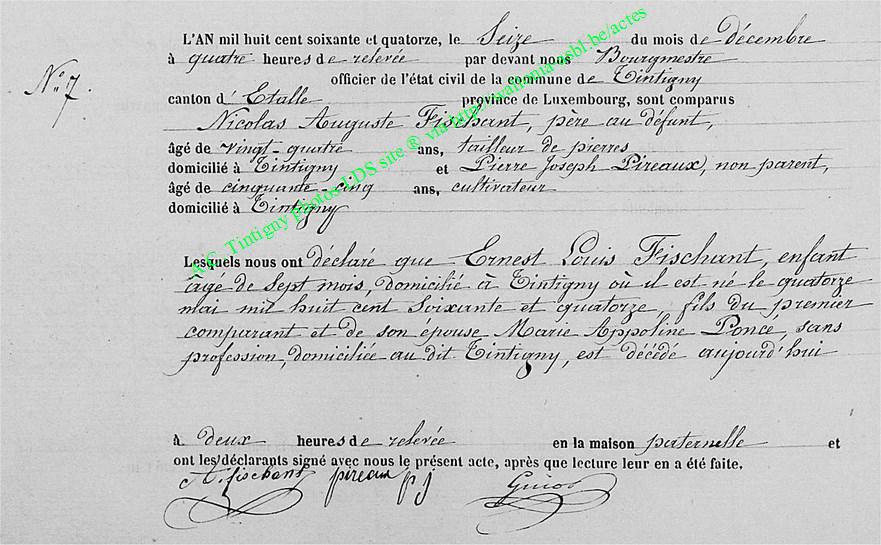 L'AN mil huit cent soixante et quatorze, le Seize du mois de décembre
à quatre heures de relevée par devant nous Bourgmestre
officier de l'état civil de la commune de Tintigny
N° 7.
canton d' Etalle province de Luxembourg, sont comparus
Nicolas Auguste Fischant, père au défunt,
âgé de vingt-quatre ans, tailleur de pierres
domicilié à Tintigny et Pierre Joseph Pireaux, non parent,
âgé de cinquante-cinq ans, cultivateur
domicilié à Tintigny
Lesquels nous ont déclaré que Ernest Louis Fischant, enfant
âgé de sept mois, domicilié à Tintigny où il est né le quatorze
mai mil huit cent soixante et quatorze, fils du premier
comparant et de son épouse Marie Appoline Poncé, sans
profession, domiciliée au dit Tintigny, est décédé aujourd'hui
à deux heures de relevée en la maison paternelle et
ont les déclarants signé avec nous le présent acte, après que lecture leur en a été faite.
A. fischant pireaux pj
A.C. Tintigny photos LDS site ® via http://www. .be/actes